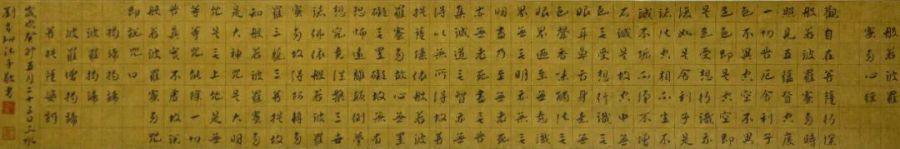 般若波羅
蜜多心經
觀自在菩薩行深
般若波羅蜜多時
照見五蘊皆空度
一切苦厄舍利子
色不異空空不異
色色即是空空即
是色受想行識亦
復如是舍利子是
諸法空相不生不
滅不垢不淨不增
不減是故空中無
色無受想行識無
眼耳鼻舌身意無
色聲香味觸法無
眼界乃至無意識
界無無明亦無無
明盡乃至無老死
亦無老死盡無苦
集滅道無智亦無
得以無所得故菩
提薩埵依般若波
羅蜜多故心無罣
礙無罣礙故無有
恐怖遠離顛倒夢
想究竟涅槃三世
諸佛依般若波羅
蜜多故得阿耨多
羅三藐三菩提故
知般若波羅蜜多
是大神咒是大明
咒是無上咒是無
等等咒能除一切
苦真實不虛故說
般若波羅蜜多咒
即說咒曰
揭諦揭諦
波羅揭諦
波羅僧揭諦
菩提薩婆訶
歲次癸卯五月二十三日三水
劉沐手敬書